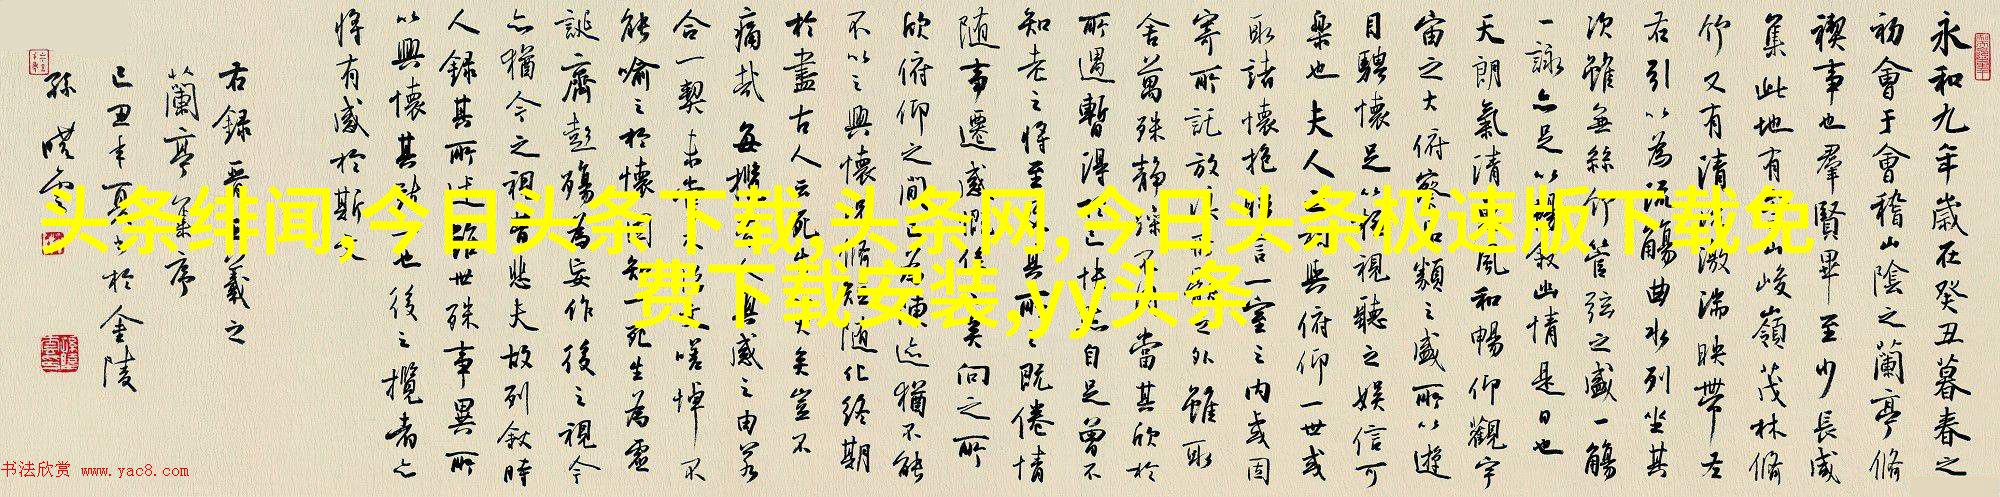 永和九年歲在癸丑暮春之
初會于會稽山陰之蘭亭脩
禊事也羣賢畢至少長咸
集此地有山峻嶺茂林脩
竹又有清激湍映帶左
右引以為流觴曲水列坐其
次雖無絲竹管弦之盛一觴
一詠亦足以暢敘幽情是日也
天朗氣清風和暢仰觀宇
宙之大俯察類之盛所以遊
目騁懷足以視聽之娛信可
樂也夫人之與俯仰一世或
取諸懷抱言一室之內或因
寄所託放之外雖取
舍萬殊静躁不當其欣於
所遇暫得己快然自足曾不
知老之將至其所之既倦情
隨事遷感慨係矣向之所
欣俯仰之間已為陳迹猶不能
不以之興懷脩短隨化終期
於盡古人云死大矣豈不
痛哉每攬興感之由若
合一契未嗟悼不
能喻之於懷固知一死生為虛
誕齊彭殤為妄作後之視今
亦猶今之視昔悲夫故列敘時
人錄其所述世殊事異所
以興懷其致一也後之攬者亦
將有感於斯文
右錄晉王羲之
蘭亭集序
己丑年夏書於金陵
孫曉雲
头条绯闻,今日头条下载,头条网,今日头条极速版下载免
费下载安装,yy头条
书法欣赏 www.yac8.com